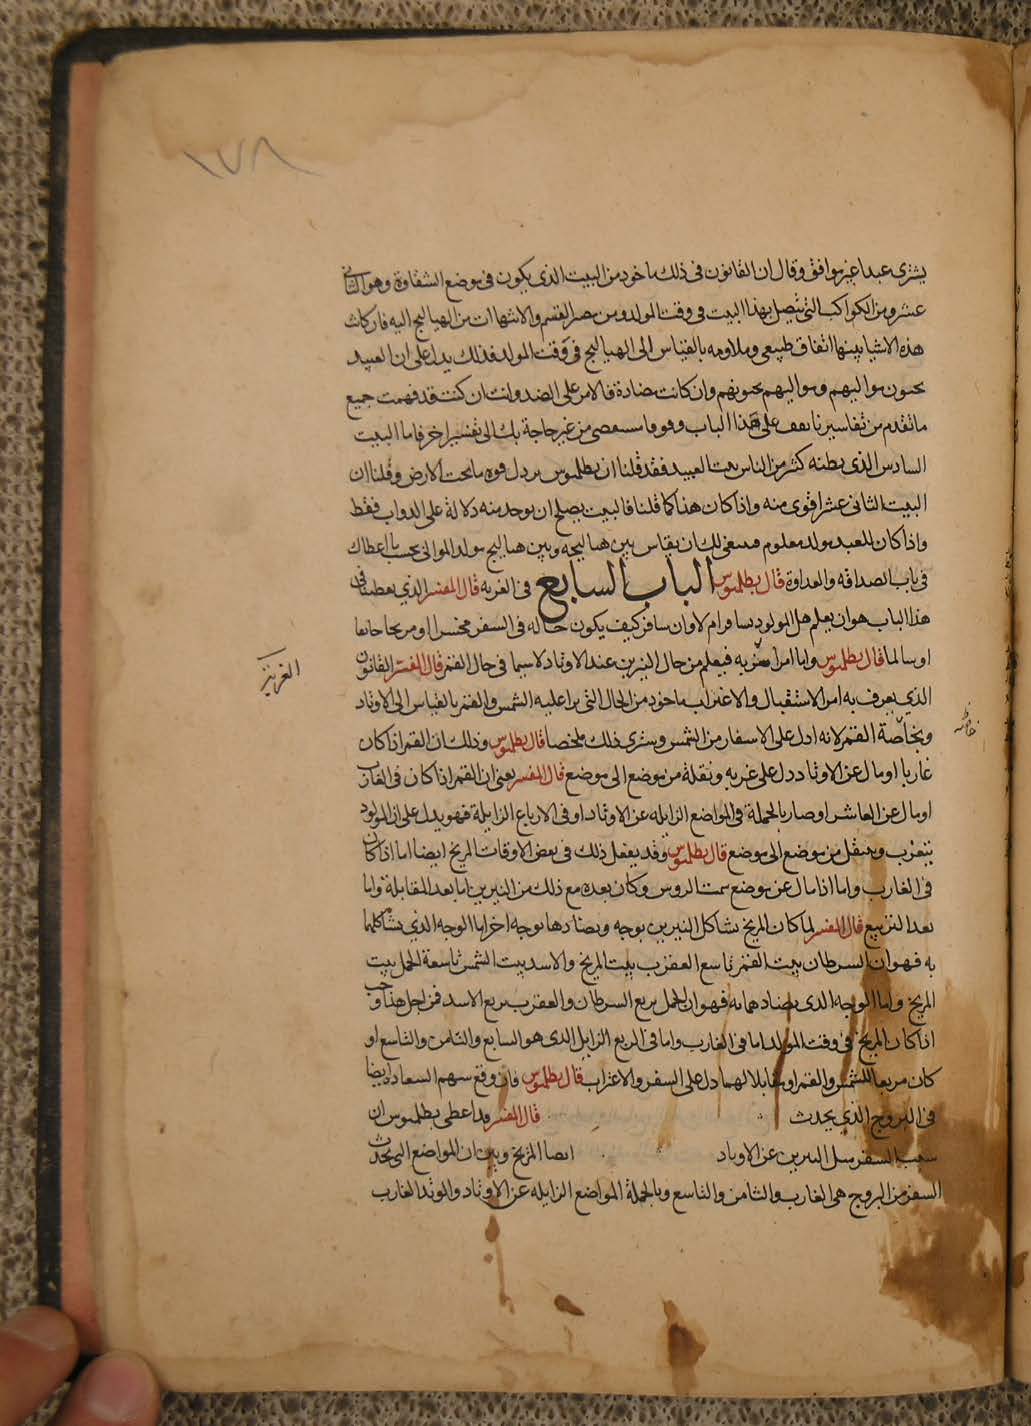 ١٧٨
يشترى عبدا غير موافق وقال ان القانون فى ذلك ماخود من البيت الذى يكون فى موضع الشقاوة وهو الثانى
عشر ومن الكواكب التى تتصل بهذا البيت فى وقت المولد ومن القسم والاتصالات من الهيالج اليه فان كانت
هذه الاشيا بينها اتفاق طبيعى وملاومه بالقياس الى الهيالج فى وقت المولد فذلك يدل على ان العبيد
يحبون مواليهم ومواليهم يحبونهم وان كانت مضادة فالامر على الضد وانت ان كنت قد فهمت جميع
ما تقدم من تفاسيرنا تقف على هذا الباب وقوفا من غير حاجة بك الى تفسير اخر فاما البيت
السادس الذى يظنه كثير من الناس بيت العبيد فقد قلنا ان بطلميوس يرذل قوه ما تحت الارض وقلنا ان
البيت الثانى عشر اقوى منه واذا كان هذا كما قلنا فالبيت يصلح ان يوجد منه دلالة على الدواب فقط
واذا كان للعبد مولد معلوم فينبغى لك ان تقاس بين هيالجه وبين هيالج مولد الموالى بحسب ما اعطاك
فى باب الصداقه والعداوة قال بطلميوس الباب السابع فى الغربه قال المفسر الذى يعطينا فى
هذا الباب هو ان يعلم هل المولود يسافر ام لا وان سافر كيف يكون حاله فى السفر مخسرا او مربحا خائفا
او سالما قال بطلميوس واما امر الغربه فيعلم من حال النيرين عند الاوتاد لا سيما فى حال القمر قال المفسر القانون
الذى يعرف به امر الاستقبال والاغتراب ماخود من الحال التى يرا عليه الشمس والقمر بالقياس الى الاوتاد
وبخاصة القمر لانه ادل على الاسفار من الشمس وسترى ذلك ملخصا قال بطلميوس وذلك ان القمر اذا كان
غاربا او مال عن الاوتاد دل على غربه ونقلة من موضع الى موضع قال المفسر يعنى ان القمر اذا كان فى الغارب
او مال عن العاشر او صار بالجملة فى المواضع الزايله عن الاوتاد او فى الارباع الزايلة فهو يدل على ان المولود
يتغرب وينتقل من موضع الى موضع قال بطلميوس وقد يفعل ذلك فى بعض الاوقات المريخ ايضا اما اذا كان
فى الغارب واما اذا مال عن موضع سمت الروس وكان بعده مع ذلك من النيرين اما بعد المقابلة واما
بعد التربيع قال المفسر لما كان المريخ يشاكل النيرين بوجه ويضادهما بوجه اخر اما الوجه الذى يشاكلهما
به فهو ان السرطان بيت القمر تاسع العقرب بيت المريخ والاسد بيت الشمس تاسعة الحمل بيت
المريخ واما الوجه الذى يضادهما به فهو ان الحمل يربع السرطان والعقرب يربع الاسد فمن اجل هذا وجب
اذا كان المريخ فى وقت المولد اما فى الغارب واما فى الربع الزايل الذى هو السابع والثامن والتاسع او
كان مربعا للشمس والقمر او مقابلا لهما دل على السفر والاغتراب قال بطلميوس فان وقع سهم السعادة ايضا
فى البروج الذى يحدث قال المفسر قد اعطى بطلميوس ان
سبب السفر ميل النيرين عن الاوتاد ايضا المريخ وبين ان المواضع التى تحدث
السفر من البروج هى الغارب والثامن والتاسع وبالجملة المواضع الزايله عن الاوتاد والوتد الغارب